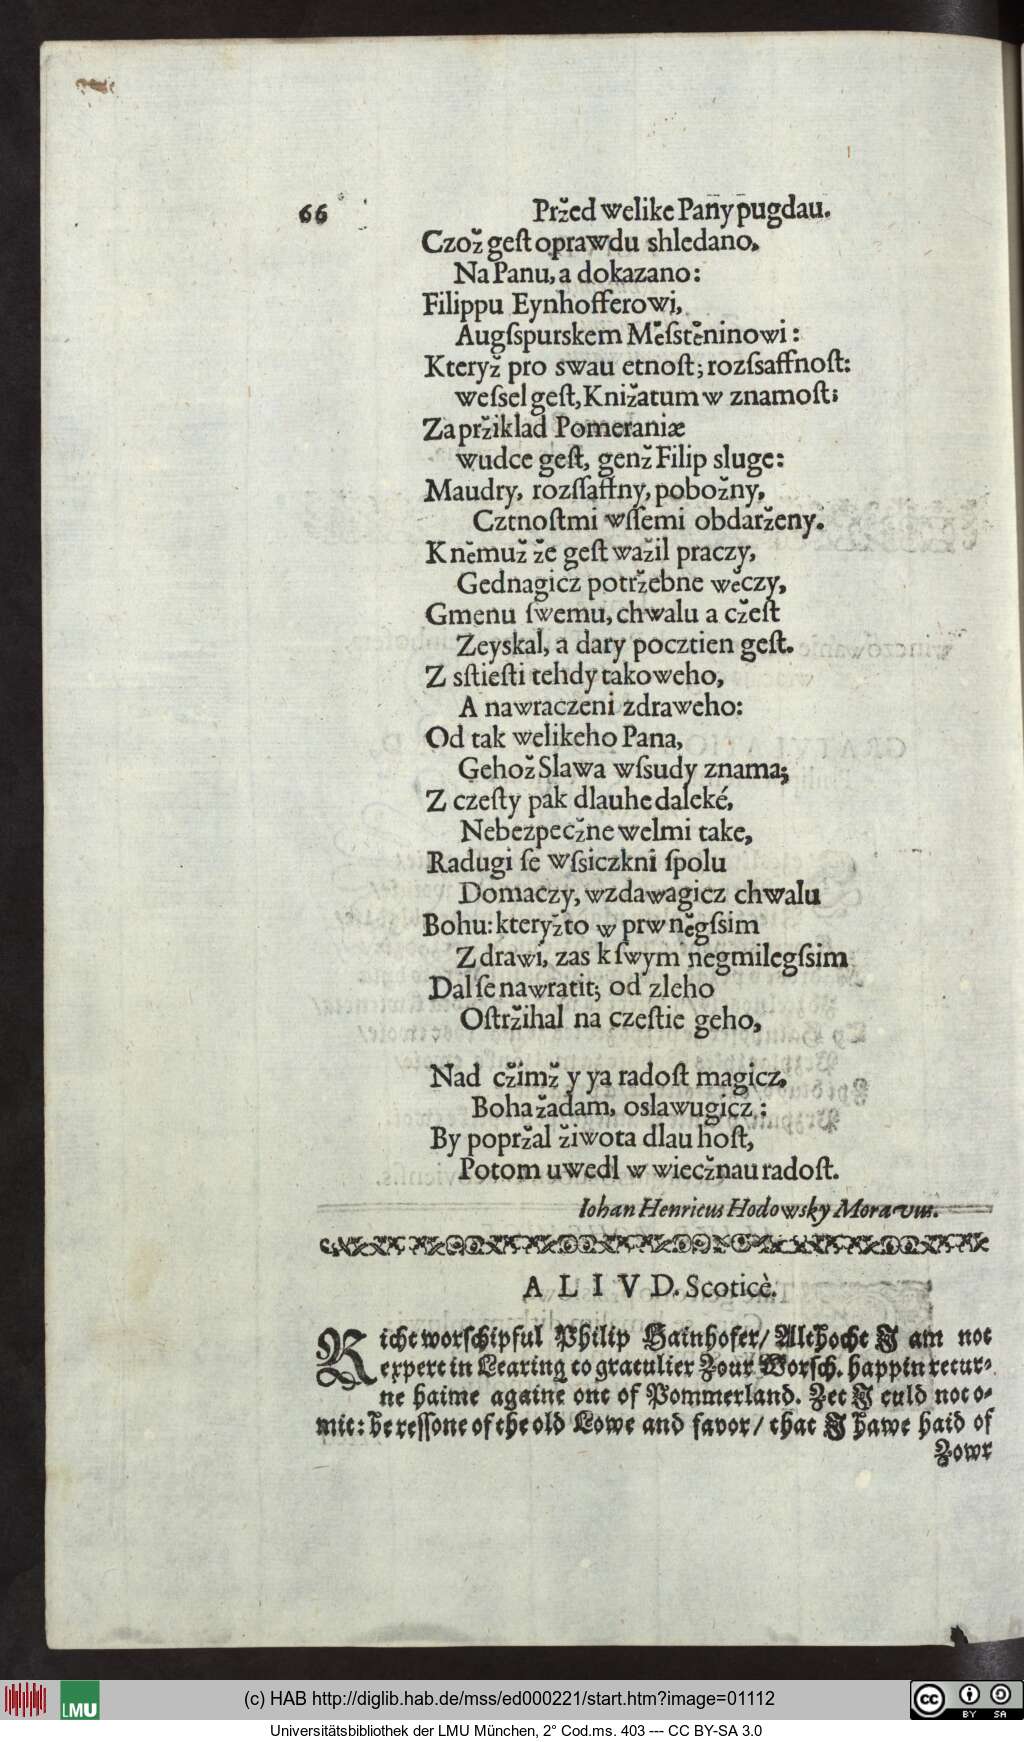 66 Pržed welike Pany pugdau.
Czož geſt oprawdu shledano,
Na Panu, a dokazano:
Filippu Eynhofferowi,
Augſspurskem Měſstěninowi:
Kteryž pro swau etnoſt; rozſsaffnoſt:
weſsel geſt, Knižatum w znamoſt;
Za pržiklad Pomeraniæ
wudce geſt, genž Filip sluge:
Maudry, rozſſaffny, pobožny,
Cztnoſtmi wſſemi obdarženy.
K němuž že geſt wažil praczy,
Gednagicz potržebne wěczy,
Gmenu ſwemu, chwalu a cžeſt
Zeyskal, a dary pocztien geſt.
Z sſtieſti tehdy takoweho,
A nawraczeni zdraweho:
Od tak welikeho Pana,
Gehož Slawa wſsudy znama;
Z czeſty pak dlauhe daleké,
Nebezpecžne welmi take,
Radugi ſe wſsiczkni ſpolu
Domaczy, wzdawagicz chwalu
Bohu: kteryžto w prwněgſsim
Zdrawi, zas k ſwym negmilegſsim
Dal ſe nawratit; od zleho
Oſtržihal na czeſtie geho,
Nad cžimž y ya radoſt magicz,
Boha žadam, oslawugicz:
By popržal žiwota dlauhoſt,
Potom uwedl w wiecžnau radoſt.
Iohan Henricus Hodowsky Moravus.
A L I V D. Scoticè.
Richt worſchipful Philip Hainhofer/ Althocht I am not
expert in Learing to gratulier Zour Worſch. happin retur-
ne haime againe ont of Pommerland. Zet I culd not o-
mit: be reſſone of the old Lowe and favor/ that I hawe haid of
Zowr
(c) HAB http://diglib.hab.de/mss/ed000221/start.htm?image=01112
Universitätsbibliothek der LMU München, 2° Cod.ms. 403 --- CC BY-SA 3.0
LMU
CC BY SA